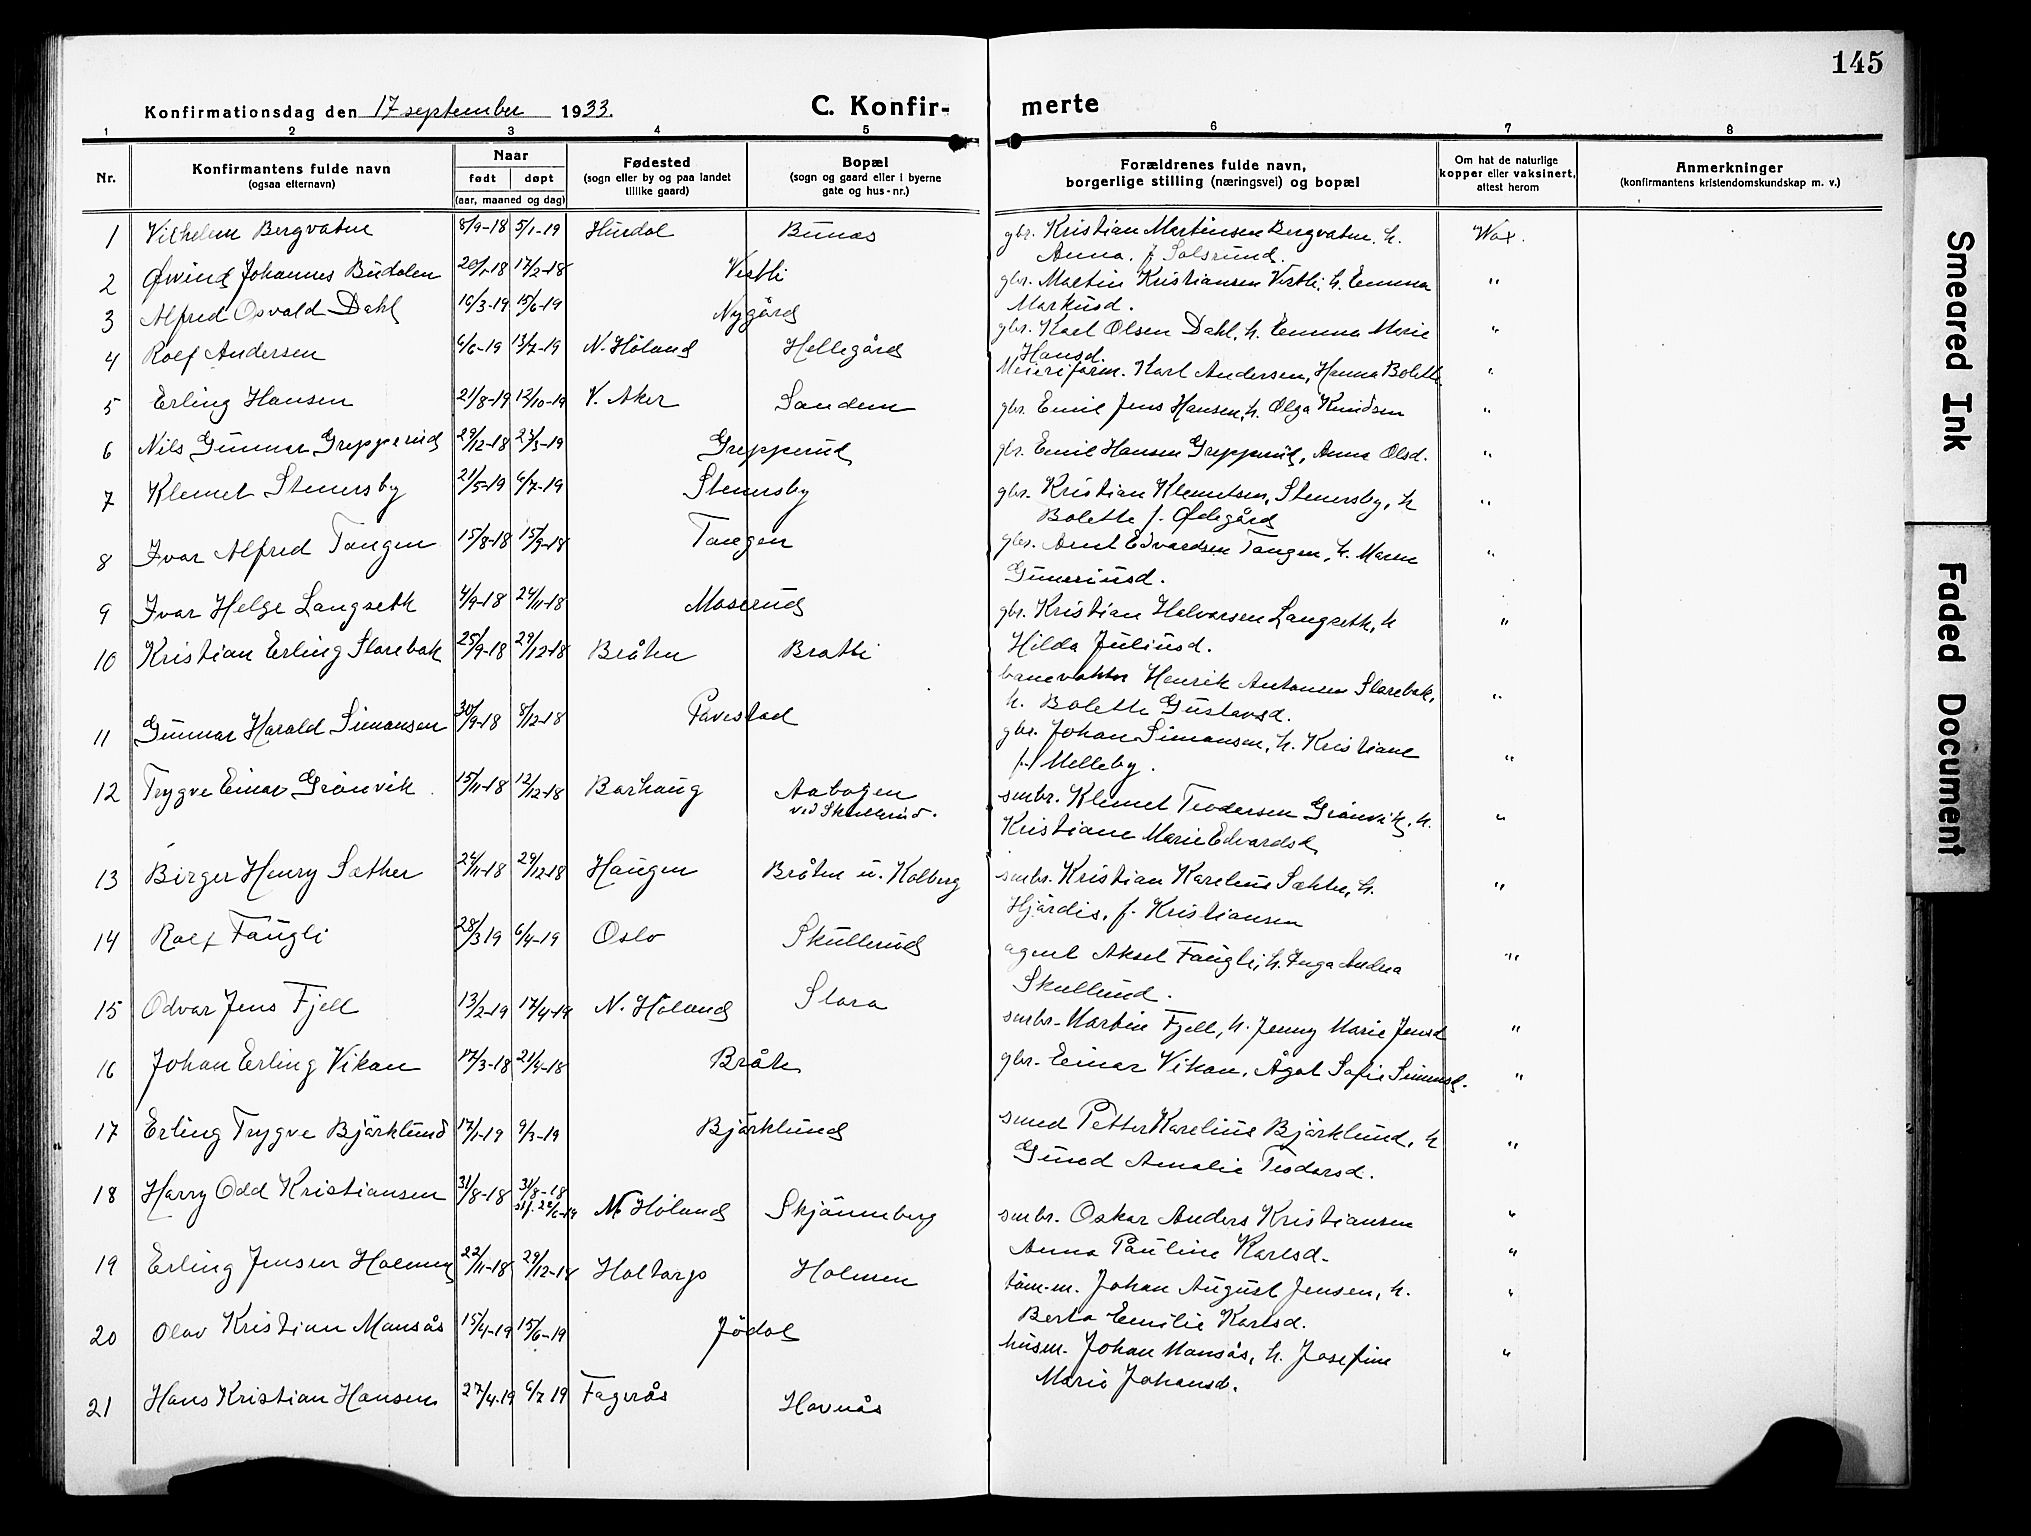 145
Konfirmationsdag den 17 september 1933.
C. Konfir- merte
1 2 3 4 5 6 7 8
Nr.
Konfirmantens fulde navn
(ogsaa efternavn)
Naar
født døpt
(aar, maaned og dag)
Fødested
(sogn eller by og paa landet
tillike gaard)
Bopæl
(sogn og gaard eller i byerne
gate og hus-nr.)
Forældrenes fulde navn,
borgerlige stilling (næringsvei) og bopæl
Om hat de naturlige
kopper eller vaksinert,
attest herom
Anmerkninger
(konfirmantens kristendomskundskap m. v.)
1 Vilhelm Bergvatn 8/9-18 5/1-19 Hurdal Bunæs gbr. Kristian Martinsen Bergvatn, h. Vax.
Anna, f. Solsrund.
2 Øivind Johannes Budalen 20/1-18 17/2-18 Vestli gbr. Martin Kristiansen Vestli, h. Emma "
Markusd.
3 Alfred Osvald Dahl 16/3-19 15/6-19 Nygård gbr. Karl Olsen Dahl, h. Emma Marie "
Hansd.
4 Rolf Andersen 6/6-19 13/7-19 N. Höland Hellegård Meieriform. Karl Andersen, Hanna Bolette "
5 Erling Hansen 21/8-19 12/10-19 V. Aker Sandem gbr. Emil Jens Hansen, h. Olga Knudsen "
6 Nils Gunnar Grepperud 29/12-18 23/3-19 Grepperud gbr. Emil Hansen Grepperud, Anna Olsd. "
7 Klemet Stenersby 21/5-19 6/7-19 Stenersby gbr. Kristian Klemetsen, Stenersby, h "
Bolette f. Ødegård
8 Ivar Alfred Tangen 15/8-18 15/9-18 Tangen gbr. Arnt Edvardsen Tangen, h. Maren "
Guneriusd.
9 Ivar Helge Langseth 4/9-18 24/11-18 Moserud gbr. Kristian Halvorsen Langseth, h "
Hilda Juliusd.
10 Kristian Erling Slorebak 25/9-18 29/12-18 Bråten Bratli banevokter Henrik Antonsen Slorebak, "
h. Bolette Gustavsd.
11 Gunnar Harald Simonsen 30/9-18 8/12-18 Pavestad gbr. Johan Simonsen, h. Kristiane "
f. Melleby.
12 Trygve Einar Grönvik 15/11-18 12/12-18 Barhaug Aabogen smbr. Klemet Teodorsen Grönvik, h. "
vid Skullerud.
Kristiane Marie Edvardsd.
13 Birger Henry Sæther 24/11-18 29/12-18 Haugen Bråten u. Kolberg smbr. Kristian Karelius Sæther, h. "
Hjördis, f. Kristiansen
14 Rolf Faugli 28/3 19 6/4-19 Oslo Skullerud agent Aksel Faugli, h. Inga Andrea "
Skullerud.
15 Odvar Jens Fjell 13/2-19 17/4-19 N. Höland Slora smbr. Martin Fjell, h. Jenny Marie Jensd "
16 Johan Erling Vikan 17/3-18 21/4-18 Bråte gbr. Einar Vikan, Ågot Sofie Simensd. "
17 Erling Trygve Björklund 17/1-19 9/3-19 Björklund smed Petter Karelius Björklund, h "
Gunod Amalie Teodorsd.
18 Harry Odd Kristiansen 31/8-18 31/8-18 N. Höland Skjönneberg smbr. Oskar Anders Kristiansen "
Anna Pauline Karlsd. "
19 Erling Jensen Holmen 22/11-18 29/12-18 Haltorp Holmen töm-m. Johan August Jensen, h. "
Berta Emilie Karlsd.
20 Olav Kristian Mansås 15/4-19 15/6-19 Jödal husm. Johan Mansås, h. Josefine "
Marie Johansd.
21 Hans Kristian Hansen 27/4-19 6/7 19 Fagerås Havnås
Smeared Ink
Faded Document